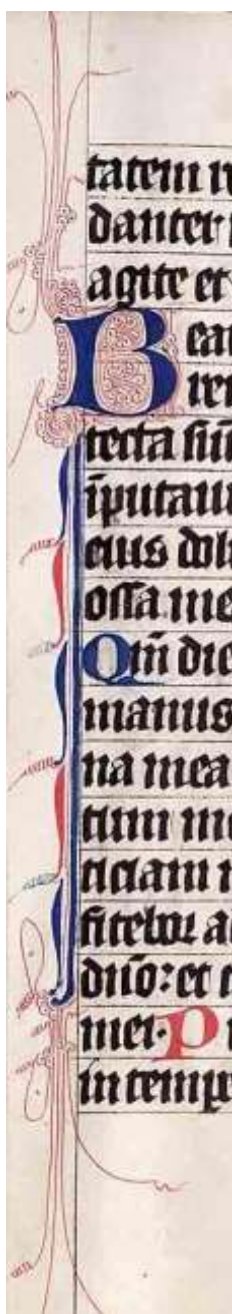 tatem
danter
agite et
Bea
rem
tecta sūt
īputaui
eius dolu
ossa me
Qm̄ die
manus
na mea
ctum me
ticiam
fitebor a
dn̄o: et
mei. P
in tempo